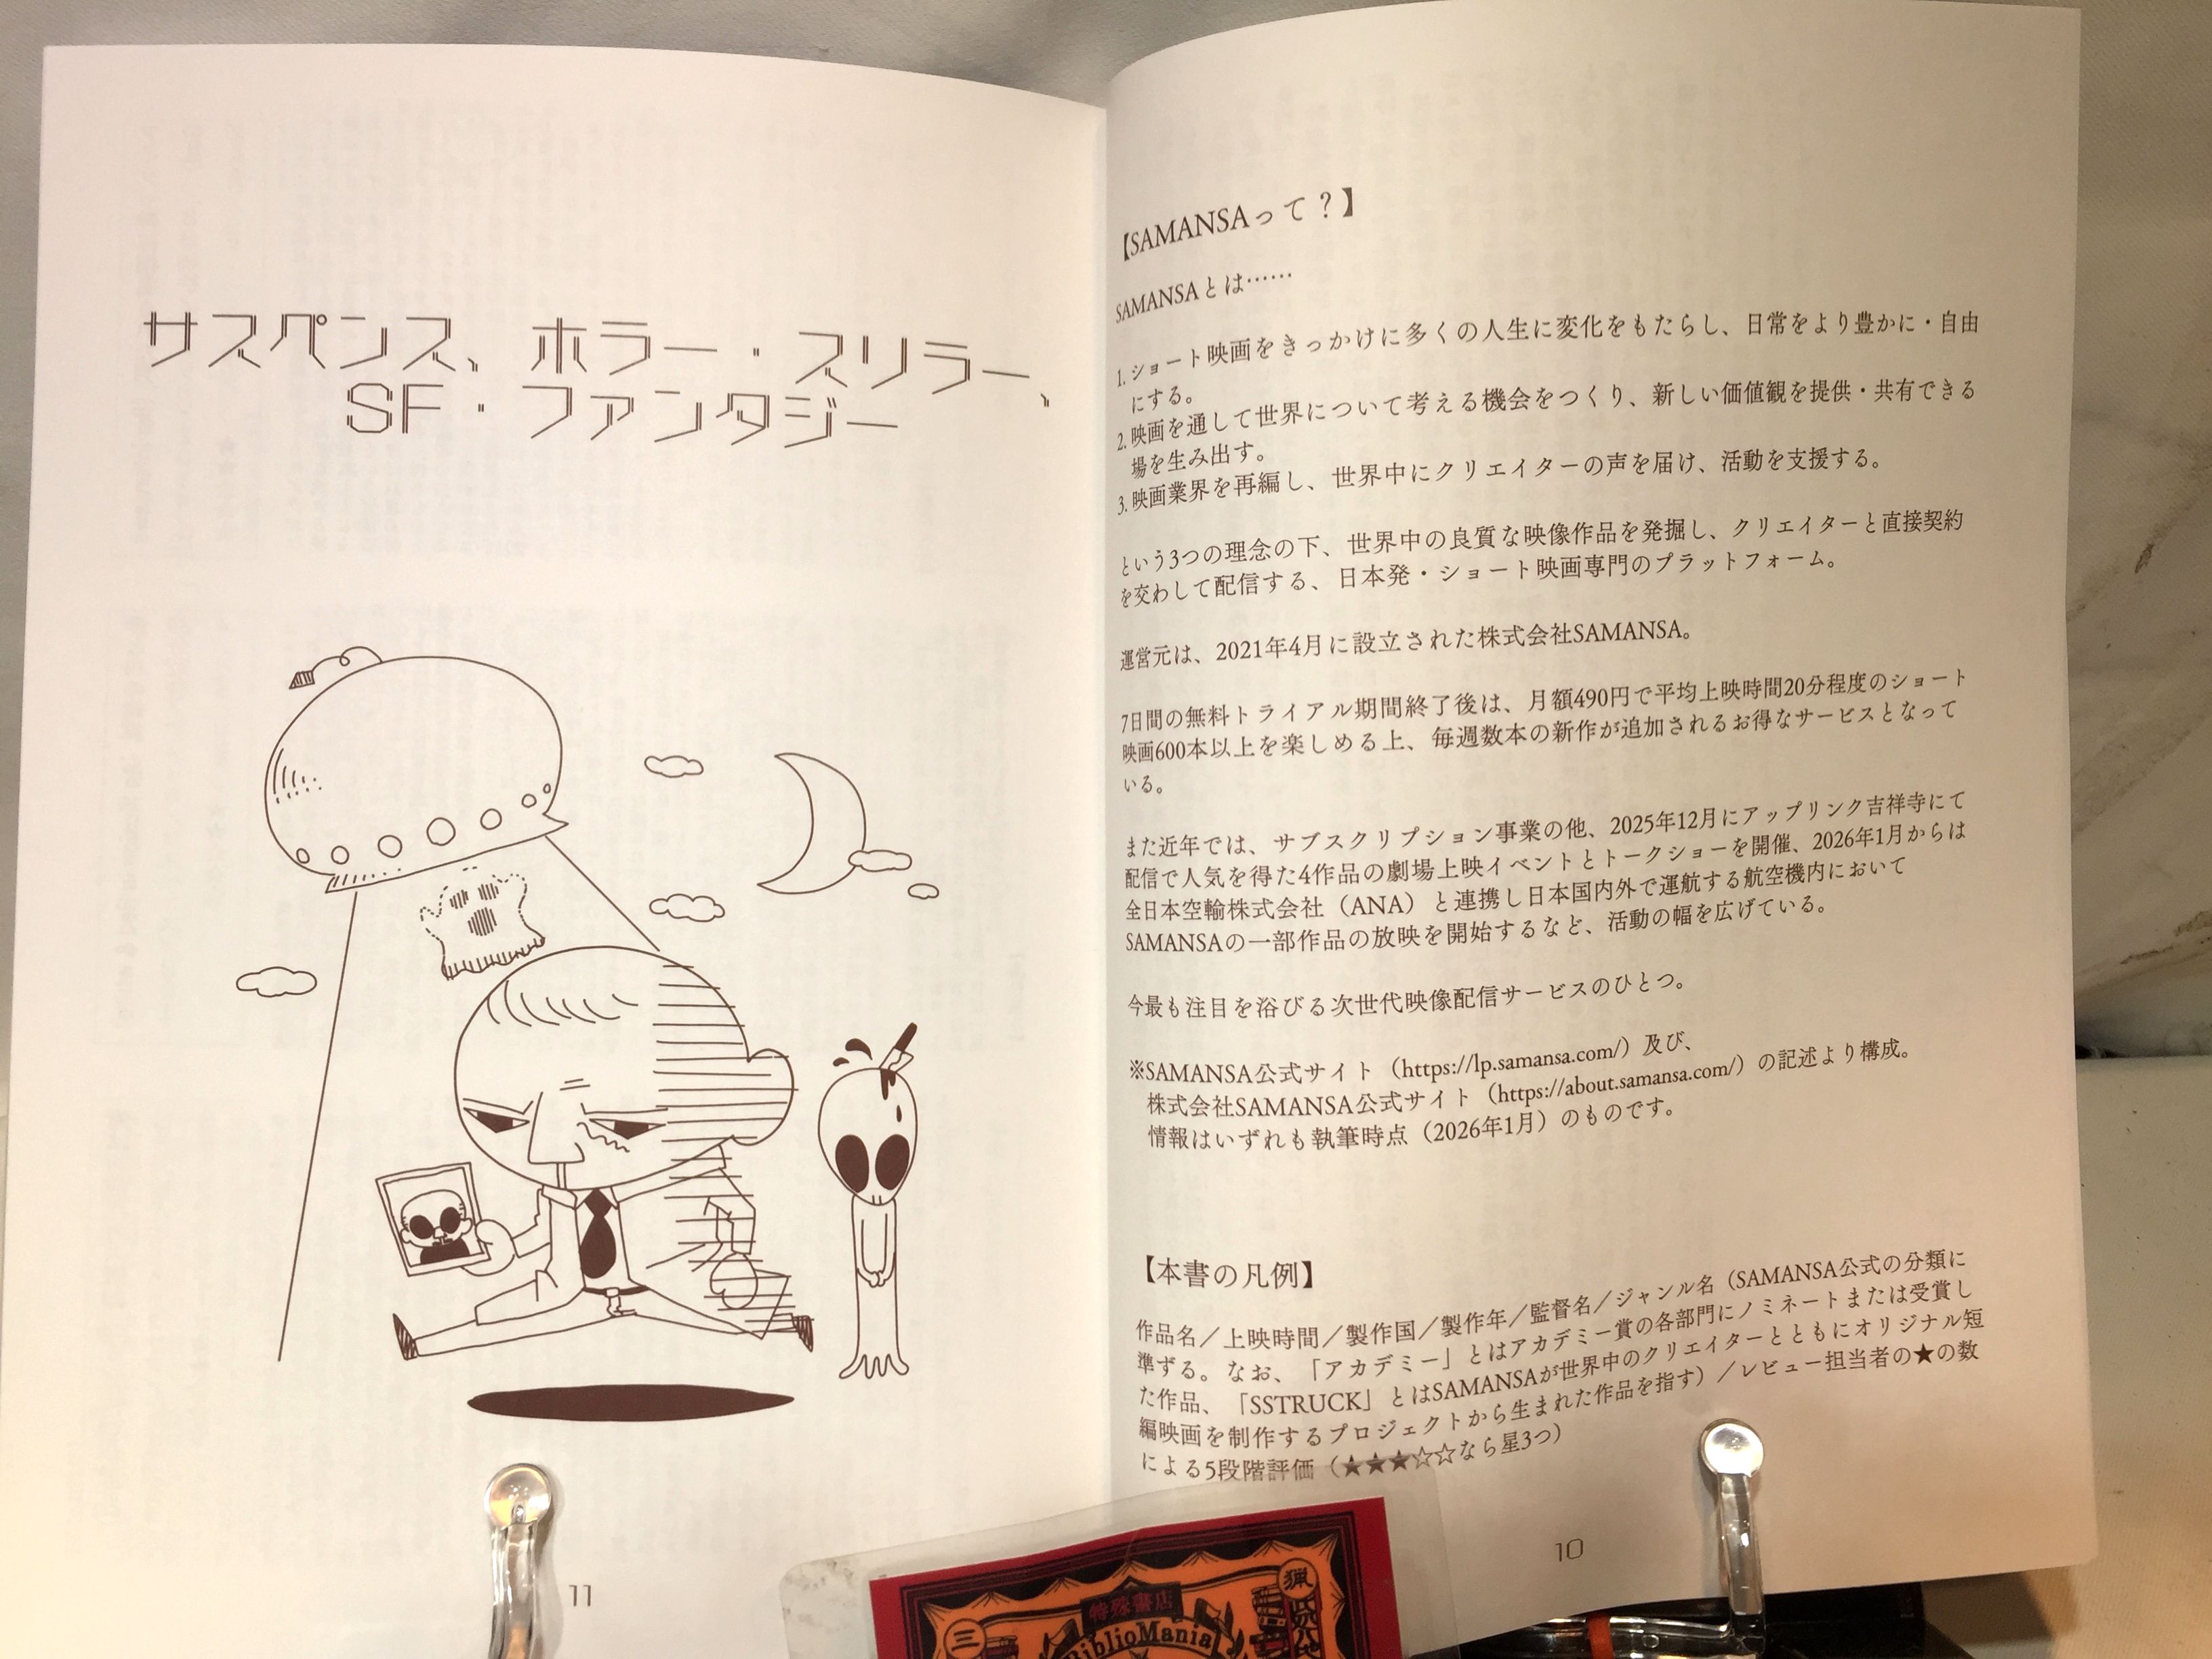 【SAMANSAって？】
SAMANSAとは……
1. ショート映画をきっかけに多くの人生に変化をもたらし、日常をより豊かに・自由
にする。
2. 映画を通して世界について考える機会をつくり、新しい価値観を提供・共有できる
場を生み出す。
3. 映画業界を再編し、世界中にクリエイターの声を届け、活動を支援する。
という3つの理念の下、世界中の良質な映像作品を発掘し、クリエイターと直接契約
を交わして配信する、日本発・ショート映画専門のプラットフォーム。
運営元は、2021年4月に設立された株式会社SAMANSA。
7日間の無料トライアル期間終了後は、月額490円で平均上映時間20分程度のショート
映画600本以上を楽しめる上、毎週数本の新作が追加されるお得なサービスとなって
いる。
また近年では、サブスクリプション事業の他、2025年12月にアップリンク吉祥寺にて
配信で人気を得た4作品の劇場上映イベントとトークショーを開催、2026年1月からは
全日本空輸株式会社（ANA）と連携し日本国内外で運航する航空機内において
SAMANSAの一部作品の放映を開始するなど、活動の幅を広げている。
今最も注目を浴びる次世代映像配信サービスのひとつ。
※SAMANSA公式サイト（https://lp.samansa.com/）及び、
株式会社SAMANSA公式サイト（https://about.samansa.com/）の記述より構成。
情報はいずれも執筆時点（2026年1月）のものです。
【本書の凡例】
作品名／上映時間／製作国／製作年／監督名／ジャンル名（SAMANSA公式の分類に
準ずる。なお、「アカデミー」とはアカデミー賞の各部門にノミネートまたは受賞し
た作品、「SSTRUCK」とはSAMANSAが世界中のクリエイターとともにオリジナル短
編映画を制作するプロジェクトから生まれた作品を指す）／レビュー担当者の★の数
による5段階評価（★★★☆☆なら星3つ）
10
サスペンス、ホラー・スリラー、
SF・ファンタジー
11
特殊書店
BiblioMania
三
猟